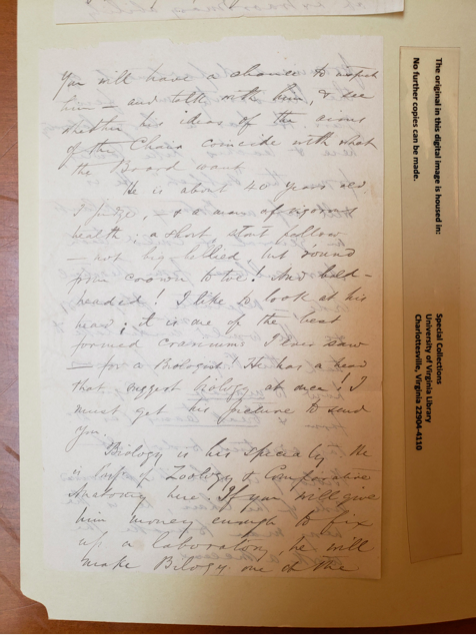 You will have a chance to inspect
him — and talk with him, & see
whether his ideas of the aims
of the Chair coincide with what
the Board want.
He is about 40 years old
I judge, — & a man of vigorous
health; a short, stout fellow
— not big bellied, but round
from crown to toe! And bald-
headed! I like to look at his
head; it is one of the best
formed craniums I ever saw
— for a Biologist! He has a head
that suggest biology at once! I
must get his picture to send
you.
Biology is his specialty He
is Profr of Zoology & Comparative
Anatomy here. If you will give
him money enough to fix
up a laboratory, he will
make Biology one of the
The original in this digital image is housed in:
No further copies can be made.
Special Collections
University of Virginia Library
Charlottesville, Virginia 22904-4110